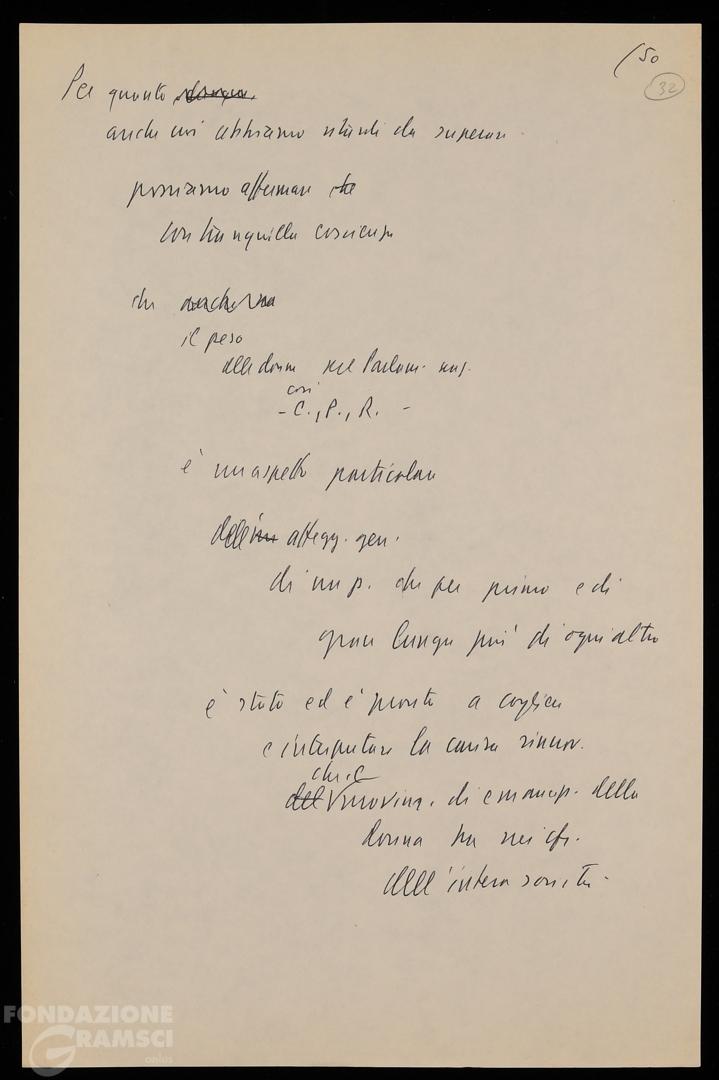 50
32
Per quanto
anche noi abbiamo ritardi da superare
possiamo affermare che
con tranquilla coscienza
che anche
il peso
delle donne nel Parlam. naz.
così
- C., P., R. -
è un aspetto particolare
dell' attegg. gen.
di un p. che per primo e di
gran lunga più di ogni altro
è stato ed è pronto a cogliere
e interpretare la carica rinnov.
che il
del movim. di emancip. della
donna ha nei cfr.
dell'intera società.
FONDAZIONE
GRAMSCI
onlus